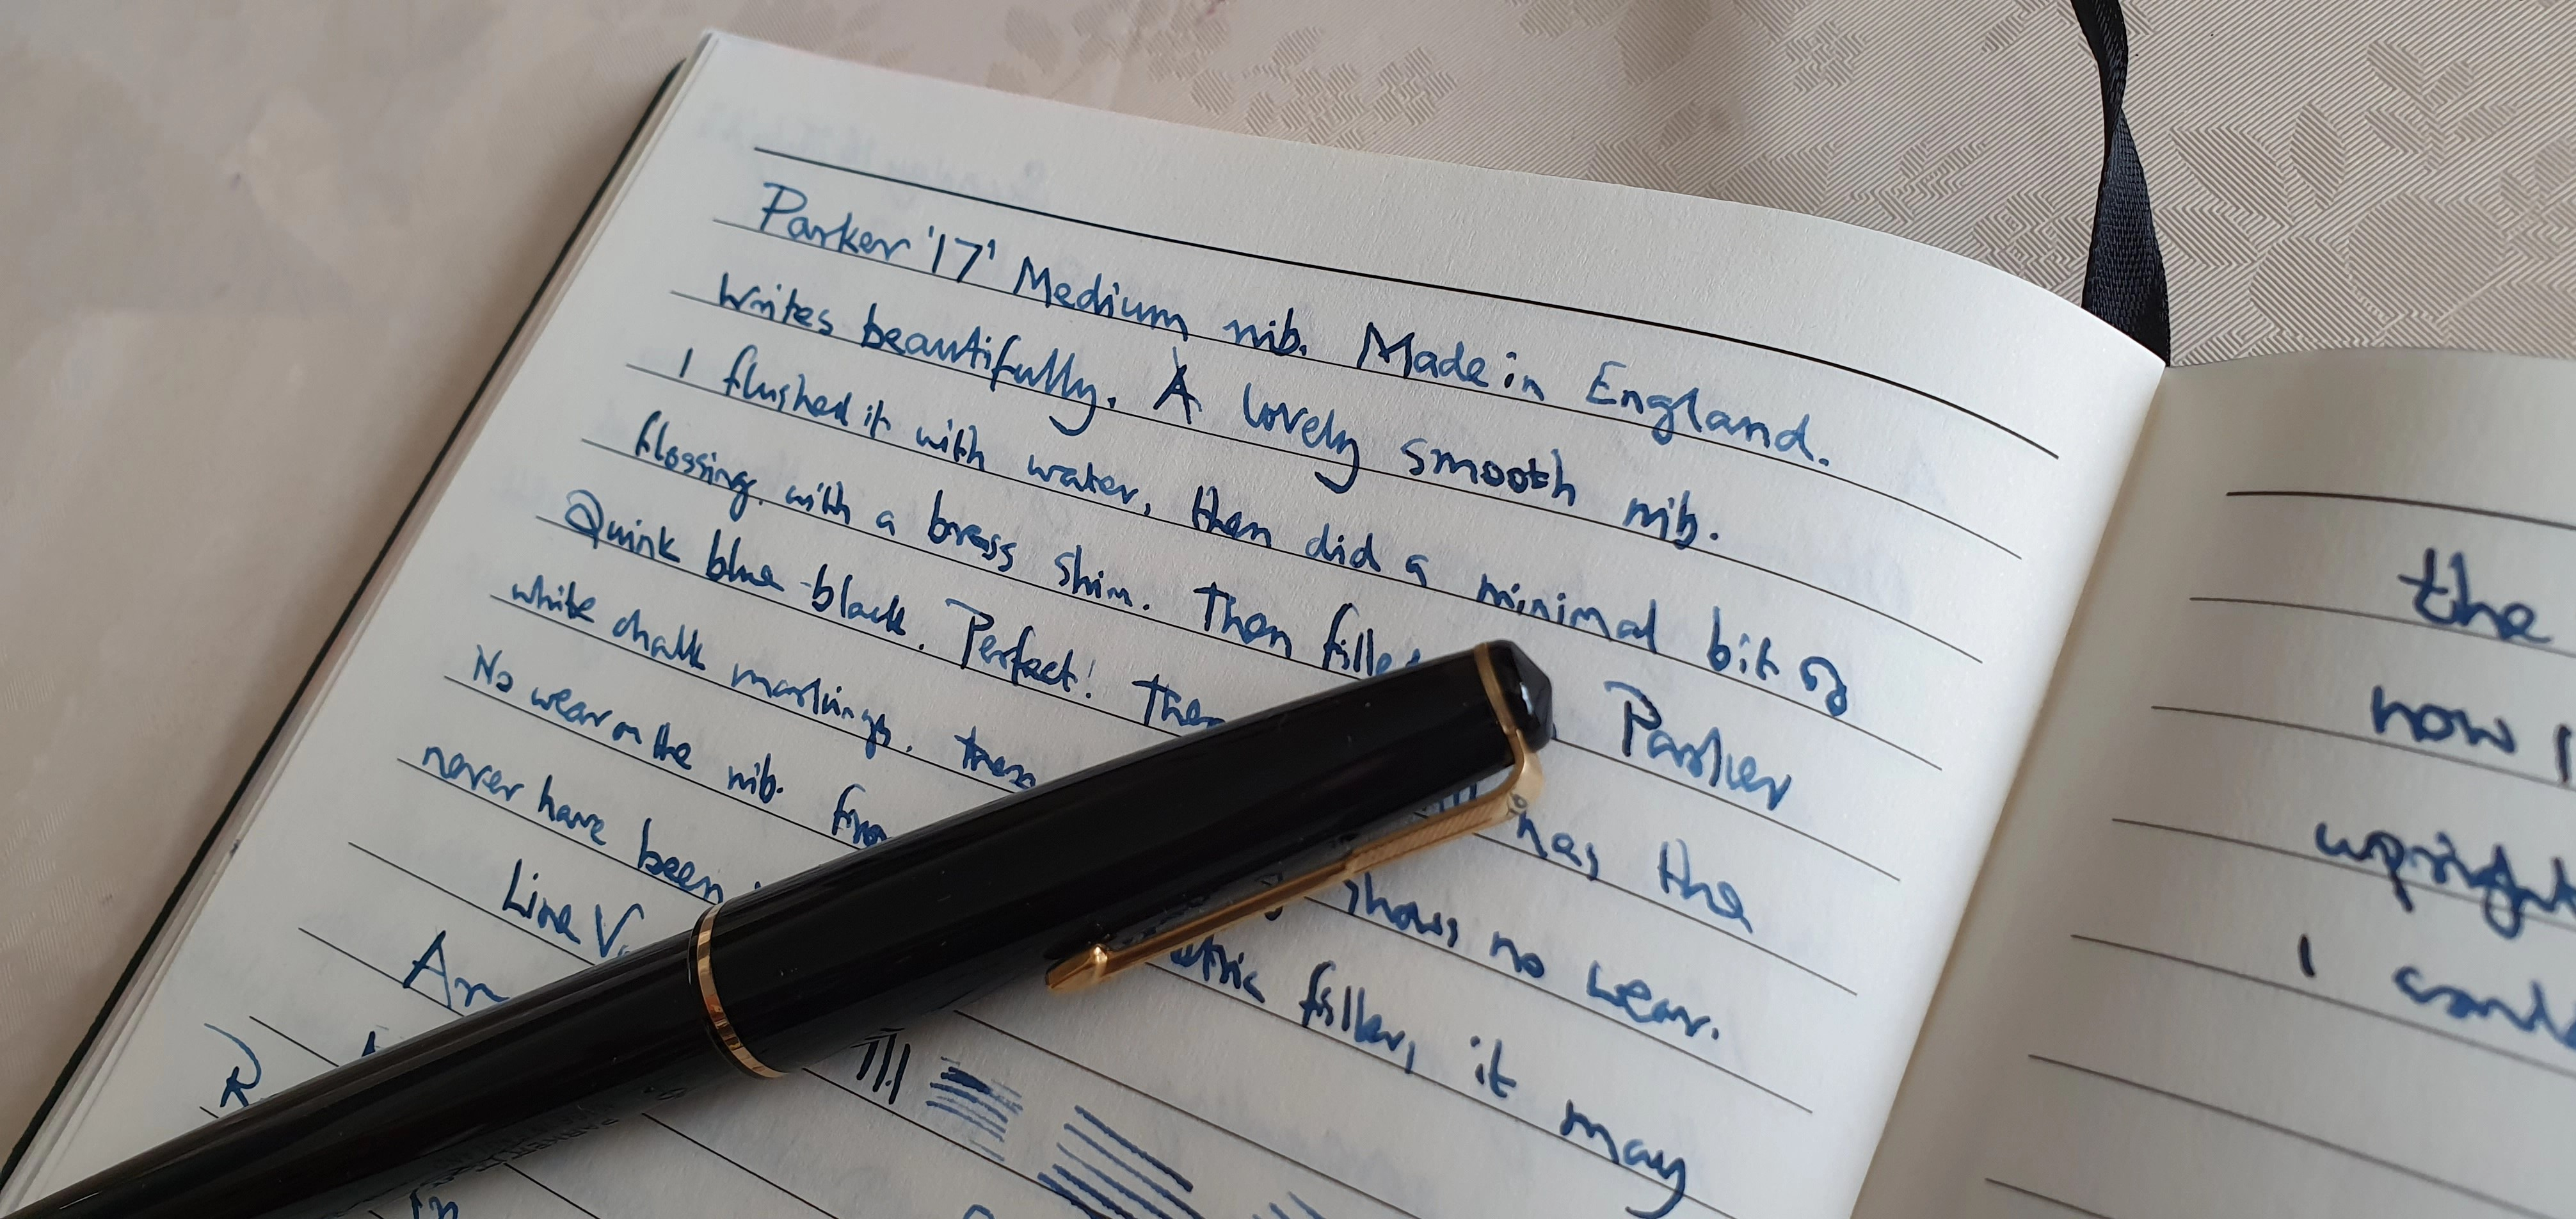 Parker '17' Medium nib. Made in England.
Writes beautifully. A lovely smooth nib.
I flushed it with water, then did a minimal bit of
flossing with a brass shim. Then filled Parker
Quink blue-black. Perfect! has the
white chalk markings. shows no wear.
No wear on the nib. filler, it may
never have been
Line
An
R
the
now I
upright
I